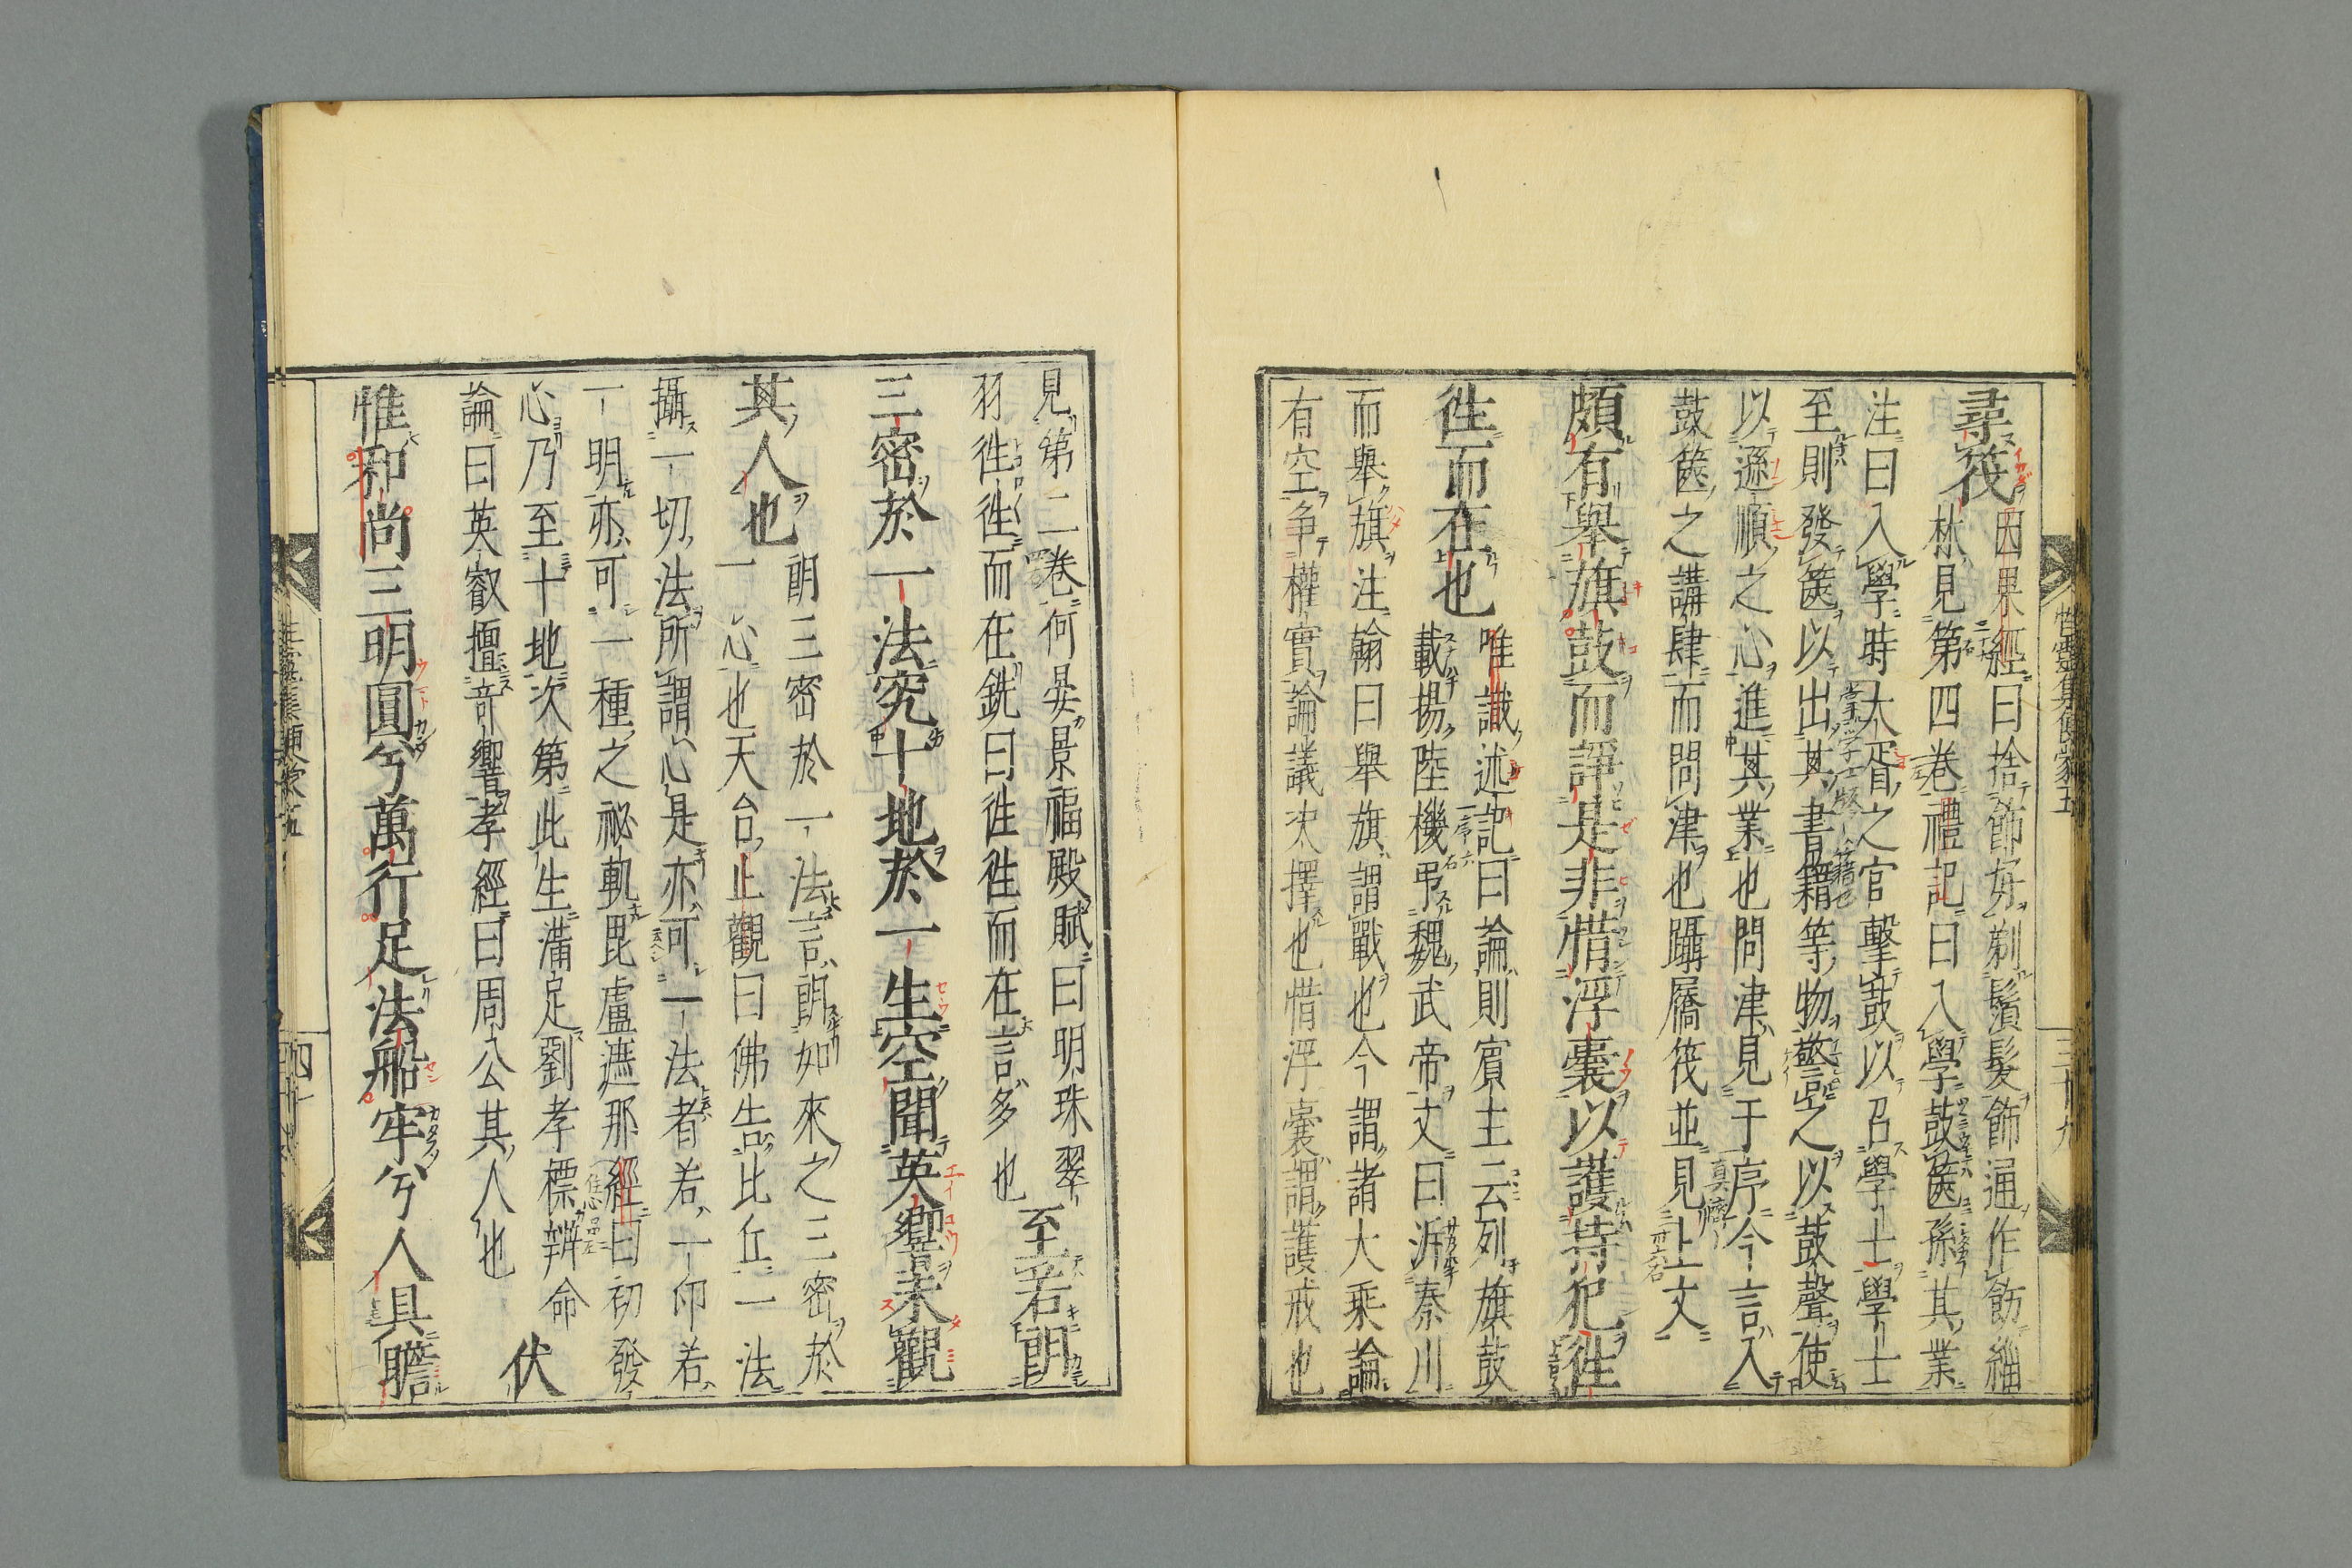 尋筏因果經曰捨飾好剃鬚髮飾通作飭緇
林見第四卷禮記曰入學鼓篋孫其業
注曰入學時大胥之官擊鼓以召學士學士
至則發篋以出其書籍等物警之以鼓聲使
以遜順之心進其業也問津見于序今言入
鼓篋之講肆而問津也躡屩筏並見上文
頗有舉旗鼓而諍是非惜浮囊以護持犯徃
唯識述記曰論則賓主云列旗鼓
徃而在也載揚陸機弔魏武帝文曰泝秦川
而舉旗注翰曰舉旗謂戰也今謂諸大乘論
有空爭權實論議決擇也惜浮囊謂護戒也
見第二卷何晏景福殿賦曰明珠翠
羽徃徃而在銑曰徃徃而在言多也至若朗
三密於一法究十地於一生空聞英響未觀
其人也朗三密於一法言朗如來之三密於
一心也天台止觀曰佛告比丘一法
攝一切法所謂心是亦可一法者若一印若
一明亦可一種之祕軌毘盧遮那經曰初發
心乃至十地次第此生滿足劉孝標辨命
論曰英叡擅奇響孝經曰周公其人也伏
惟和尚三明圓兮萬行足法船牢兮人具瞻